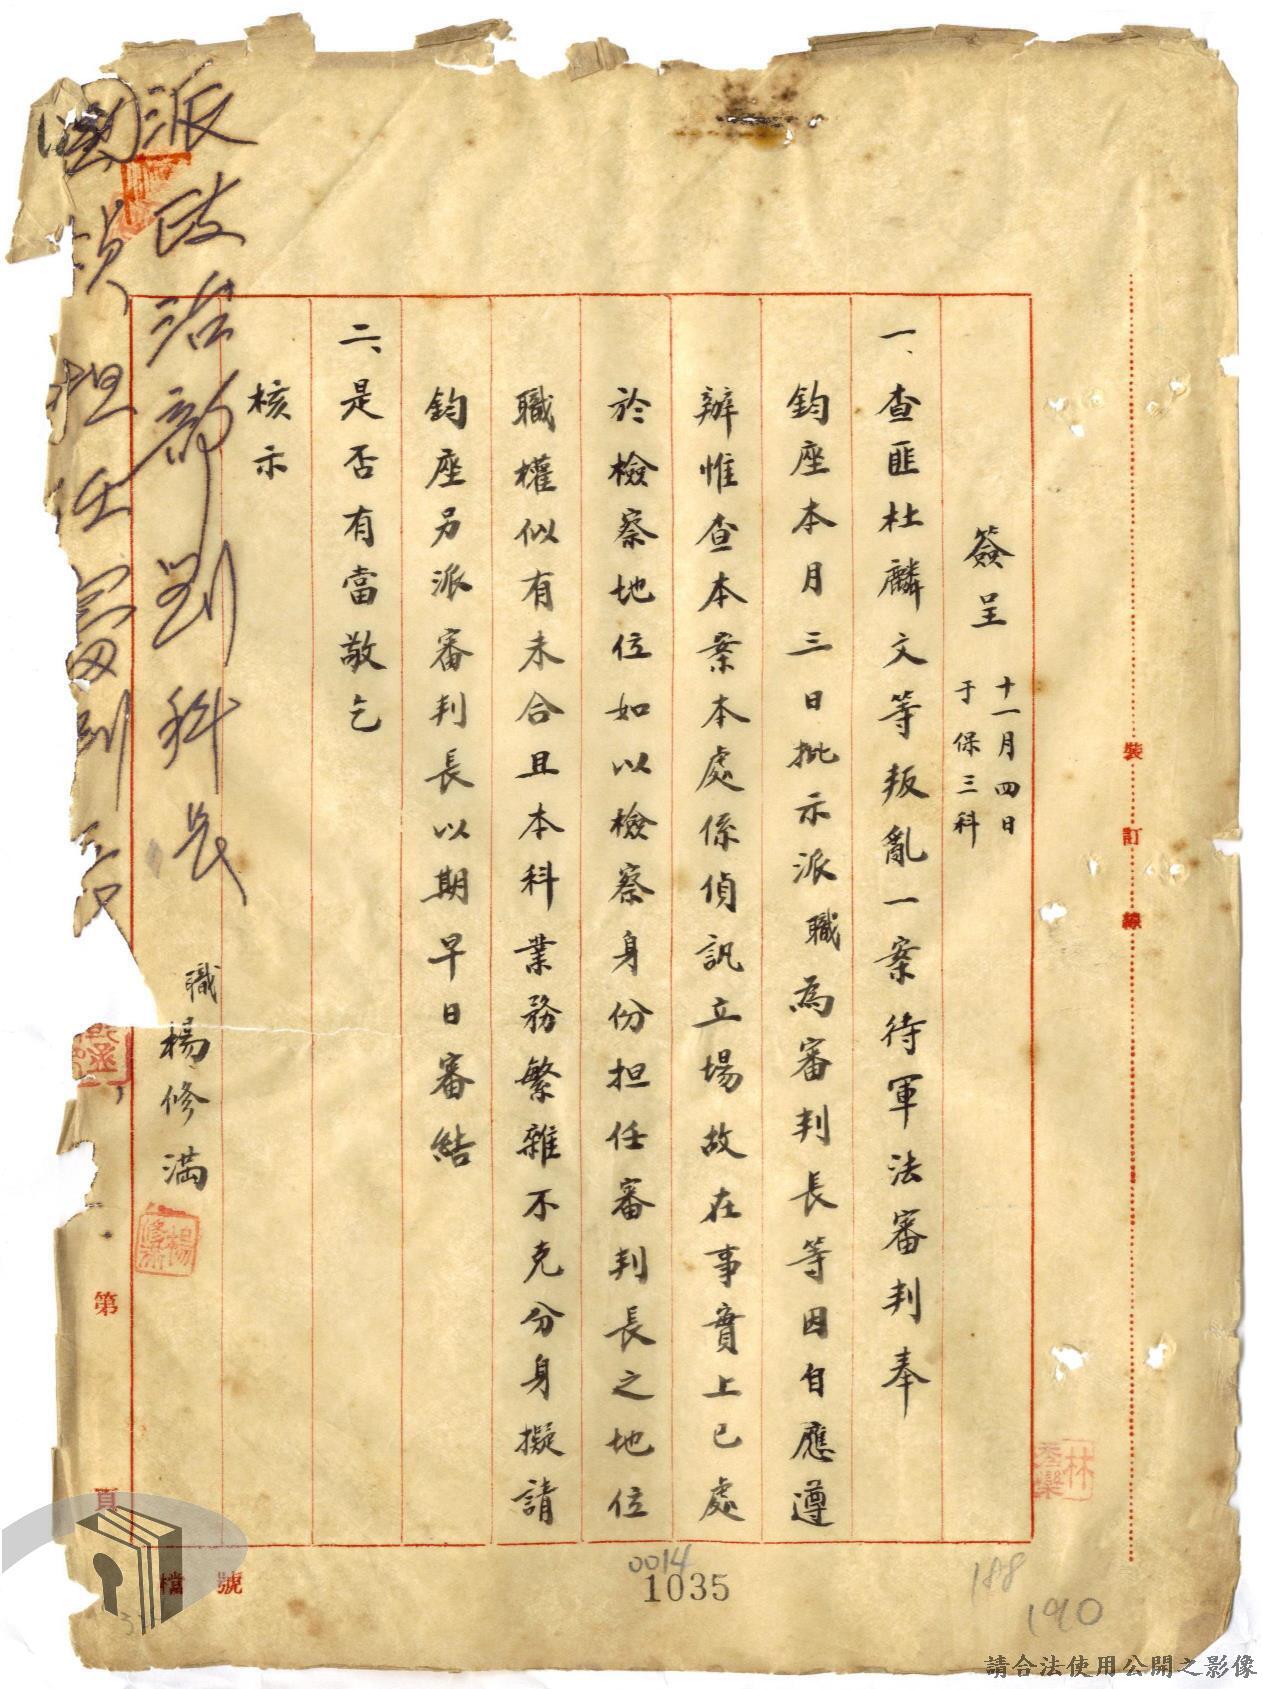 裝訂線
簽呈 十一月四日
于保三科
一、查匪杜麟文等叛亂一案待軍法審判奉
鈞座本月三日批示派職為審判長等因自應遵
辦惟查本案本處係偵訊立場故在事實上已處
於檢察地位如以檢察身份担任審判長之地位
職權似有未合且本科業務繁雜不克分身擬請
鈞座另派審判長以期早日審結
二、是否有當敬乞
核示
職楊修滿
楊修滿
派政治部劉科長
担任
林秀欒
第 頁
檔號
0014
1035
188
190
請合法使用公開之影像